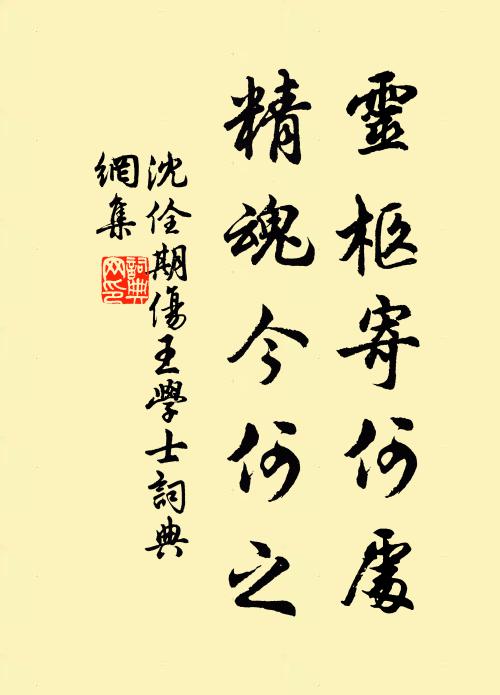 靈柩寄何處
精魂今何之
沈佺期傷王學士詞典
網集
詞典网印